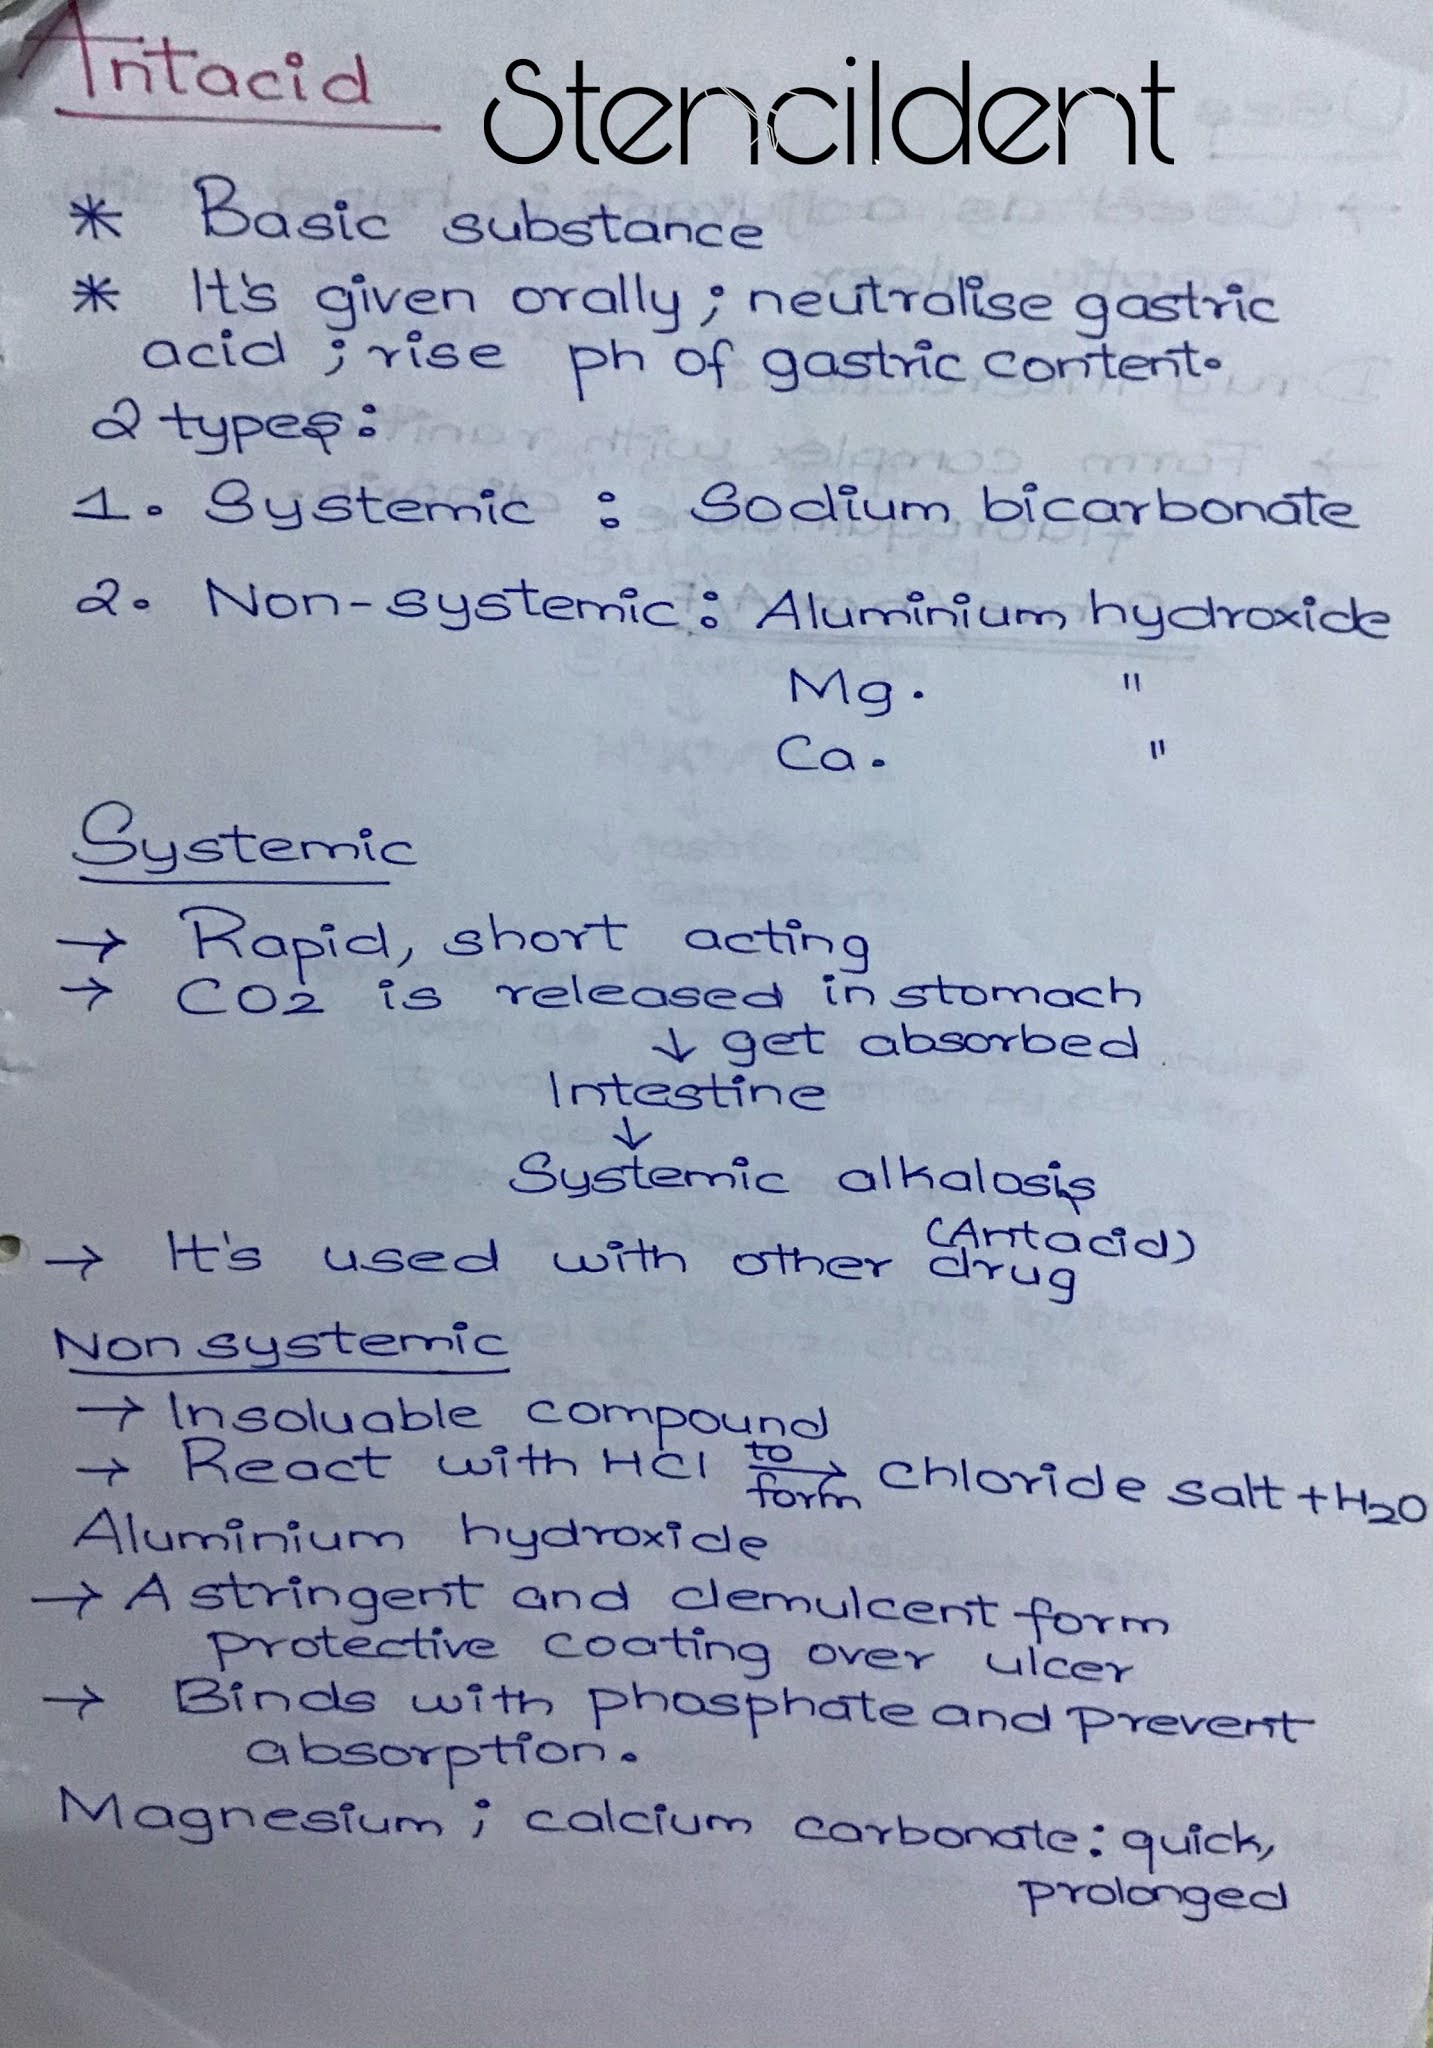 Antacid
Stencildent
* Basic substance
* It's given orally; neutralise gastric
acid; rise ph of gastric content.
2 types:
1. Systemic : Sodium bicarbonate
2. Non-systemic: Aluminium hydroxide
Mg. "
Ca. "
Systemic
→ Rapid, short acting
→ CO2 is released in stomach
↓ get absorbed
Intestine
↓
Systemic alkalosis
(Antacid)
→ It's used with other drug
Non systemic
→ Insoluable compound
→ React with HCl to form → chloride salt + H2O
Aluminium hydroxide
→ Astringent and demulcent form
protective coating over ulcer
→ Binds with phosphate and prevent
absorption.
Magnesium; calcium carbonate: quick,
prolonged